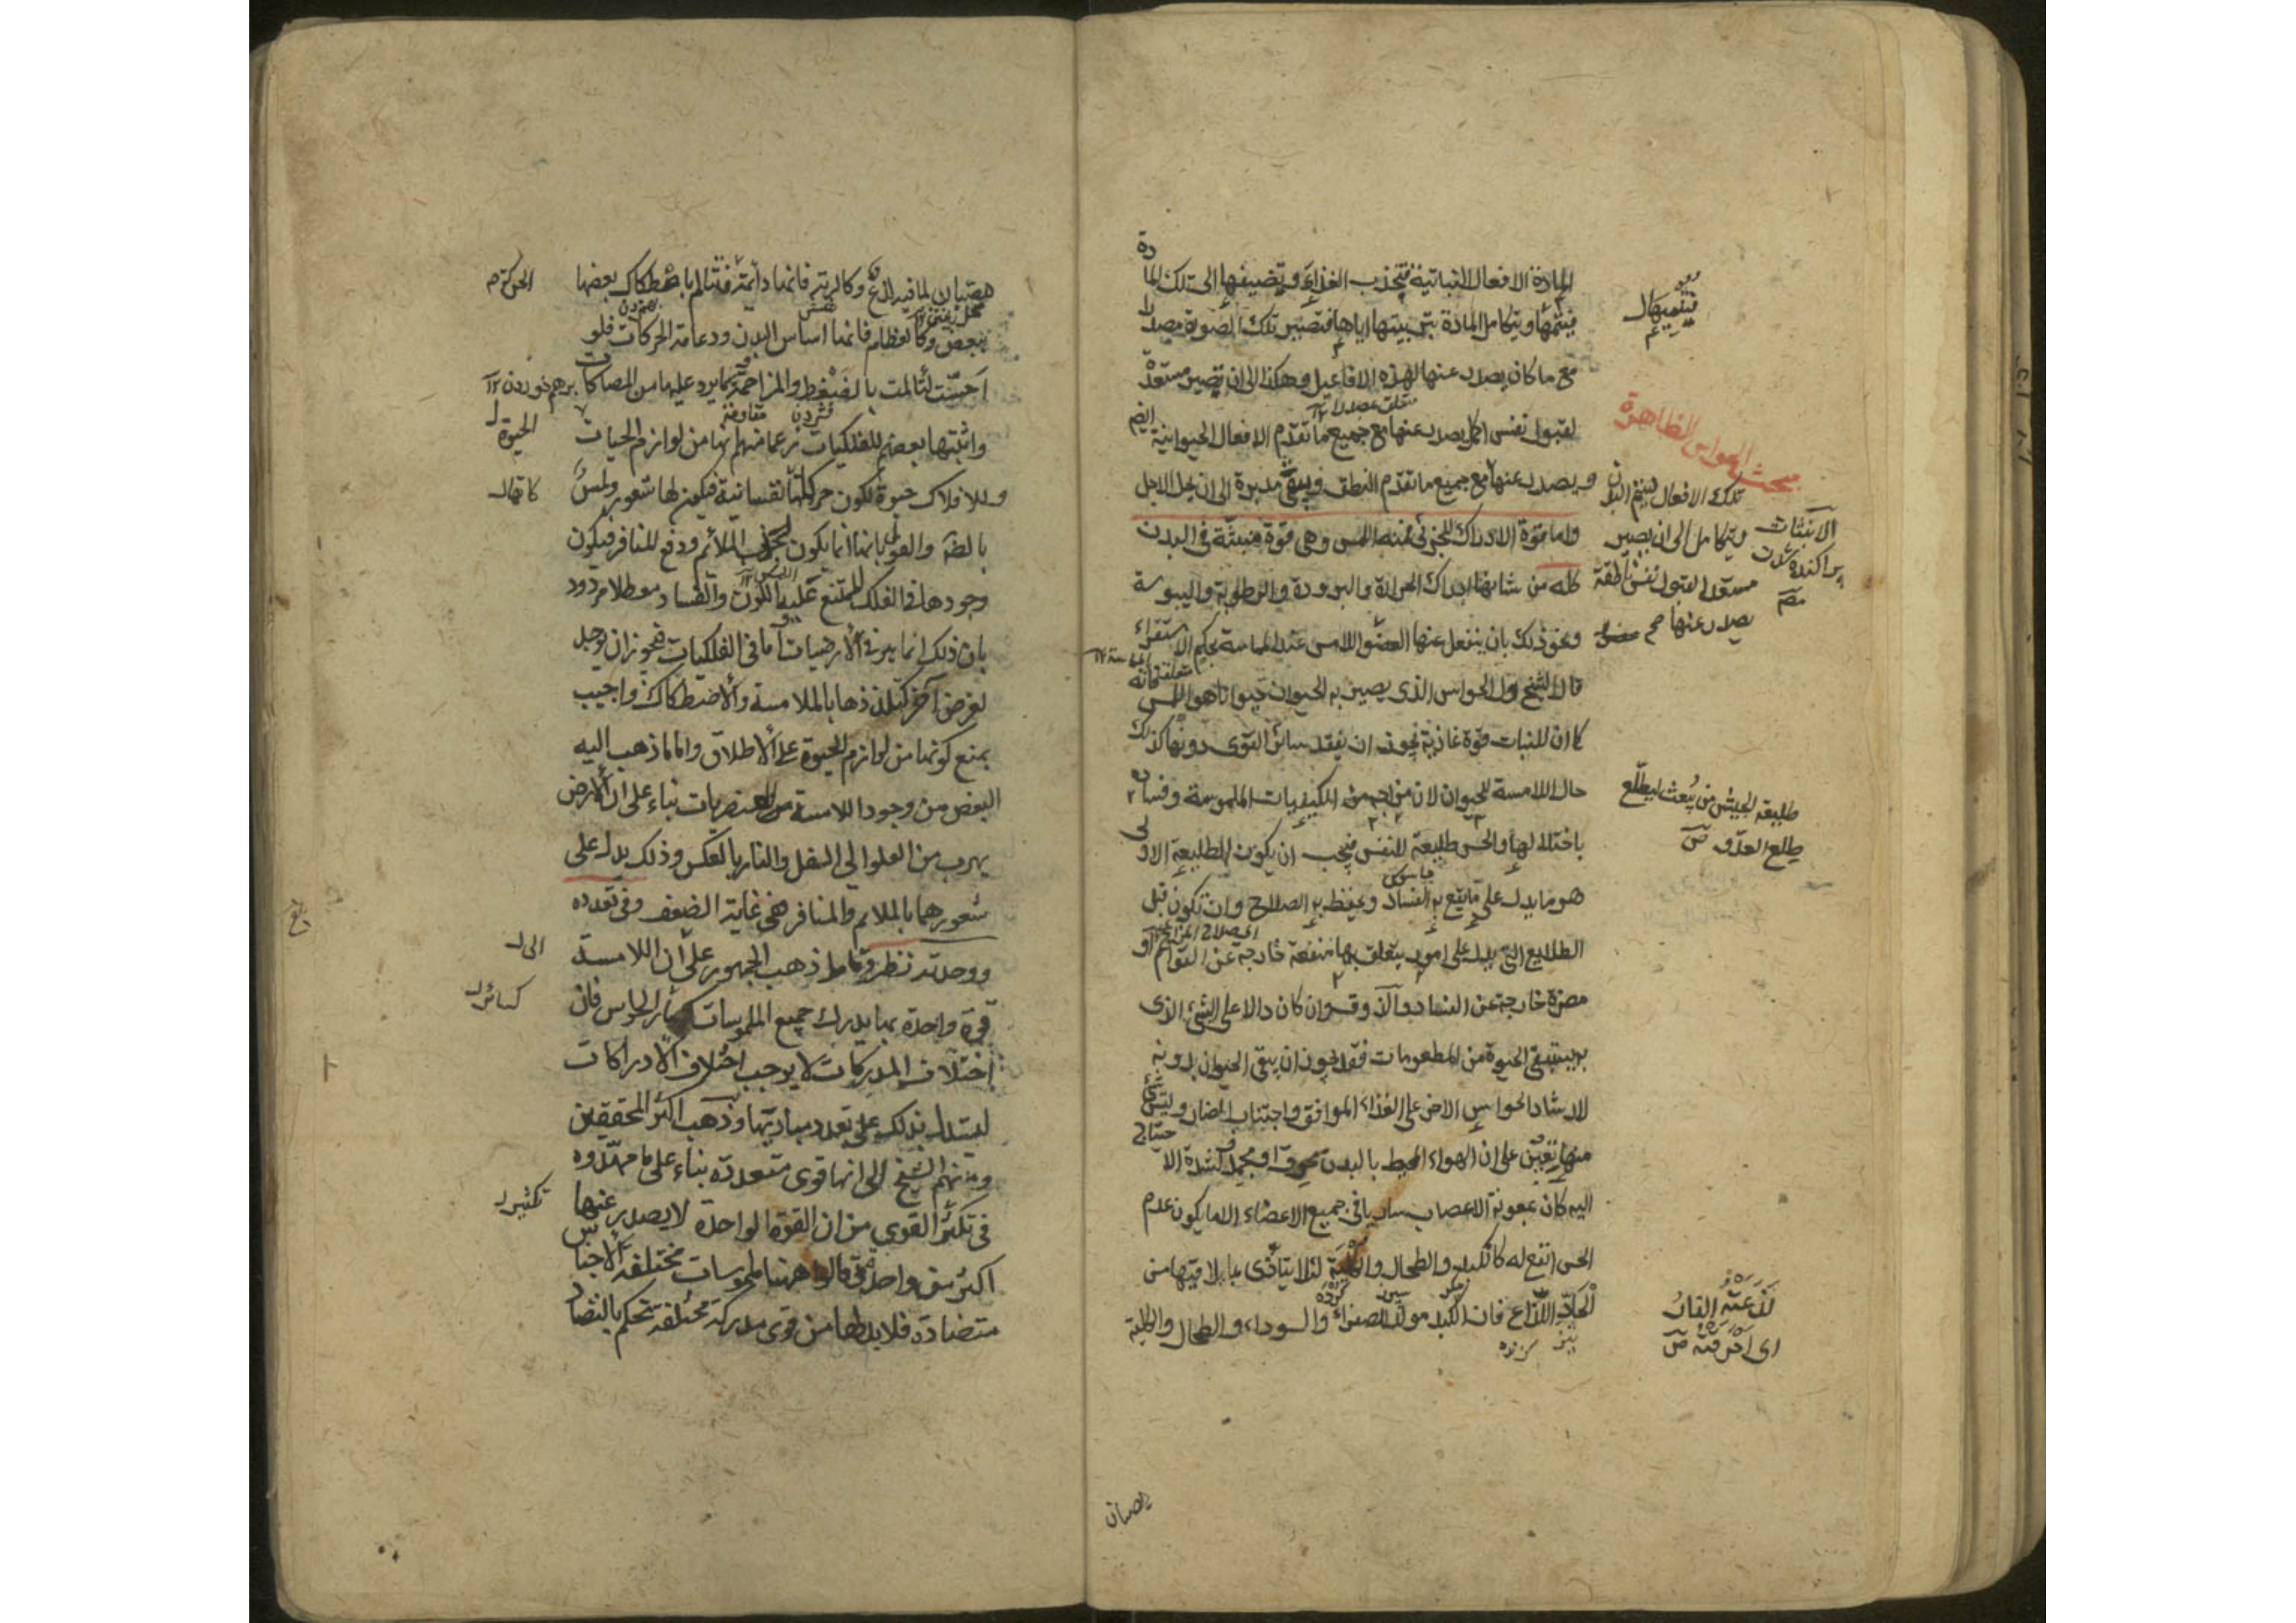 المادة الافعال النباتية فتجذب الغذاء وتضيفها الى تلك المادة
فينميها ويتكامل المادة بتربيتها اياها فتصير تلك الصورة مصدرا
مع ما كان يصدر عنها لهذه الافاعيل وهكذا الى ان تصير مستعدة
لقبول نفس اكمل يصدر عنها مع جميع ما تقدم الافعال الحيوانية ايضا
ويصدر عنها مع جميع ما تقدم النطق ويبقى مدبرة الى ان يحل الاجل
واما قوة الادراك للجزئى فمنه اللمس وهى قوة منبثة فى البدن
كله من شانها ادراك الحرارة والبرودة والرطوبة واليبوسة
ونحو ذلك بان ينفعل عنها العضو اللامس عند المماسة بحكم الاستقراء
قال الشيخ اول الحواس الذى يصير به الحيوان حيوانا هو اللمس
كما ان للنبات قوة غاذية يجوز ان يفقد سائر القوى دونها كذلك
حال اللامسة للحيوان لان مزاجه من الكيفيات الملموسة وفساده
باختلالها والحس طليعة للنفس فيجب ان يكون الطليعة الاولى
هو ما يدل على ما يقع به الفساد ويحفظ به الصلاح وان تكون قبل
الطلايع التى تدل على امور يتعلق بها منفعة خارجة عن القوام او
مضرة خارجة عن الفساد والذوق وان كان دالا على الشئ الذى
به يستبقى الحيوة من المطعومات فقد يجوز ان يبقى الحيوان بدونه
لارشاد الحواس الاخر على الغذاء الموافق واجتناب الضار وليس شئ
منها يعين على ان الهواء المحيط بالبدن محرق او مجمد ولشدة الاحتياج
اليه كان بمعونة الاعصاب ساريا فى جميع الاعضاء الا ما يكون عدم
الحس انفع له كالكبد والطحال والكلية لئلا يتأذى بما يلاقيها من
الحاد اللذاع فان الكبد مولد للصفراء والسوداء والطحال والكلية
مبحث الحواس الظاهرة
تلك الافعال فيتم البدن
ويتكامل الى ان يصير
مستعدا لقبول نفس ناطقة
يصدر عنها صح
الانبثاث
پراكنده شدن
طليعة الجيش من يبعث ليطلع
طلع العدو ص
لذعته النار
اى احرقته ص
مصبان لما فيه لذع وكالرية فانها دائمة فتتألم باصطكاك بعضها
ببعض وكالعظام فانها اساس البدن ودعامة الحركات فلو
احست لتألمت بالضغط والمزاحمة بما يرد عليها من المصاكات
واثبتها بعضهم للفلكيات زعما منهم انها من لوازم الحيات
وللافلاك حيوة لكون حركاتها نفسانية فيكون لها شعور ولمس
بالضرورة والقول بانها انما يكون لجذب الملائم ودفع المنافر فيكون
وجودها فى الفلك الممتنع عليه الكون والفساد معطلا مردود
بان ذلك انما هو فى الارضيات اما فى الفلكيات فيجوز ان يوجد
لغرض آخر كتلذذها بالملامسة والاصطكاك واجيب
بمنع كونها من لوازم الحيوة على الاطلاق واما ما ذهب اليه
البعض من وجود اللامسة للعنصريات بناء على ان الارض
يهرب من العلو الى السفل والنار بالعكس وذلك يدل على
شعورهما بالملائم والمنافر ففى غاية الضعف وفى تعدده
ووحدته نظر ذهب الجمهور على ان اللامسة
قوة واحدة بها يدرك جميع الملموسات كسائر الحواس فان
اختلاف المدركات لا يوجب اختلاف الادراكات
ليستدل بذلك على تعدد مباديها وذهب اكثر المحققين
ومنهم الشيخ الى انها قوى متعددة بناء على ما مهدوه
فى تكثر القوى من ان القوة الواحدة لا يصدر عنها
اكثر من واحد فقالوا ههنا ملموسات مختلفة الاجناس
متضادة فلا بد لها من قوى مدركة مختلفة تحكم بالتضاد
الحركة م
برهم خوردن ١٢
الحيوة ل
كما قال
الى ل
كسائر ل
تكثير ل